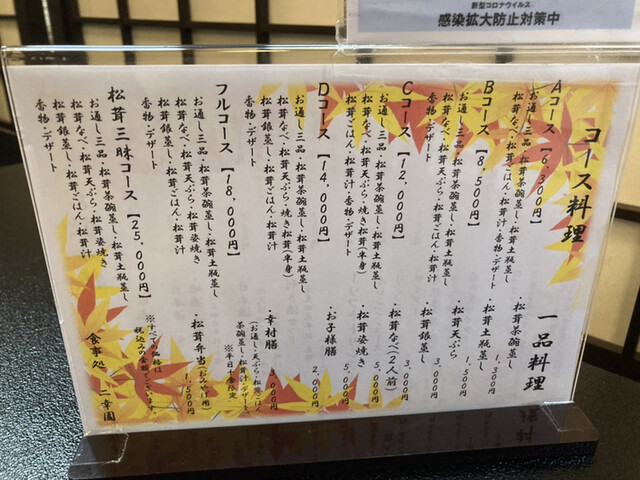 新型コロナウイルス
感染拡大防止対策中
コース料理
Aコース【6,300円】
お通し三品・松茸茶碗蒸し・松茸土瓶蒸し
松茸なべ・松茸天ぷら・松茸ごはん・松茸汁
香物・デザート
Bコース【8,500円】
お通し三品・松茸茶碗蒸し・松茸土瓶蒸し
松茸なべ・松茸天ぷら
松茸銀蒸し・松茸ごはん・松茸汁
香物・デザート
Cコース【12,000円】
お通し三品・松茸茶碗蒸し・松茸土瓶蒸し
松茸なべ・松茸天ぷら・焼き松茸(半身)
松茸ごはん・松茸汁・香物・デザート
Dコース【14,000円】
お通し三品・松茸茶碗蒸し・松茸土瓶蒸し
松茸なべ・松茸天ぷら・焼き松茸(半身)
松茸銀蒸し・松茸ごはん・松茸汁
香物・デザート
フルコース【18,000円】
お通し三品・松茸茶碗蒸し・松茸土瓶蒸し
松茸なべ・松茸天ぷら・松茸姿焼き
松茸銀蒸し・松茸ごはん・松茸汁
香物・デザート
松茸三昧コース【25,000円】
お通し三品・松茸茶碗蒸し・松茸土瓶蒸し
松茸なべ・松茸天ぷら・松茸姿焼き
松茸銀蒸し・松茸ごはん・松茸汁
香物・デザート
一品料理
・松茸茶碗蒸し
1,300円
・松茸土瓶蒸し
1,500円
・松茸天ぷら
3,000円
・松茸銀蒸し
3,000円
・松茸なべ(2人前)
5,000円
・松茸姿焼き
5,000円
・お子様膳
2,000円
・幸村膳
3,000円
(お通し・天ぷら・松茸ごはん
茶碗蒸し・松茸汁・デザート)
※平日・限定
・松茸弁当(おみやげ用)
1,500円
※すべての価格は
税込みの金額でございます。
食事処 二幸園